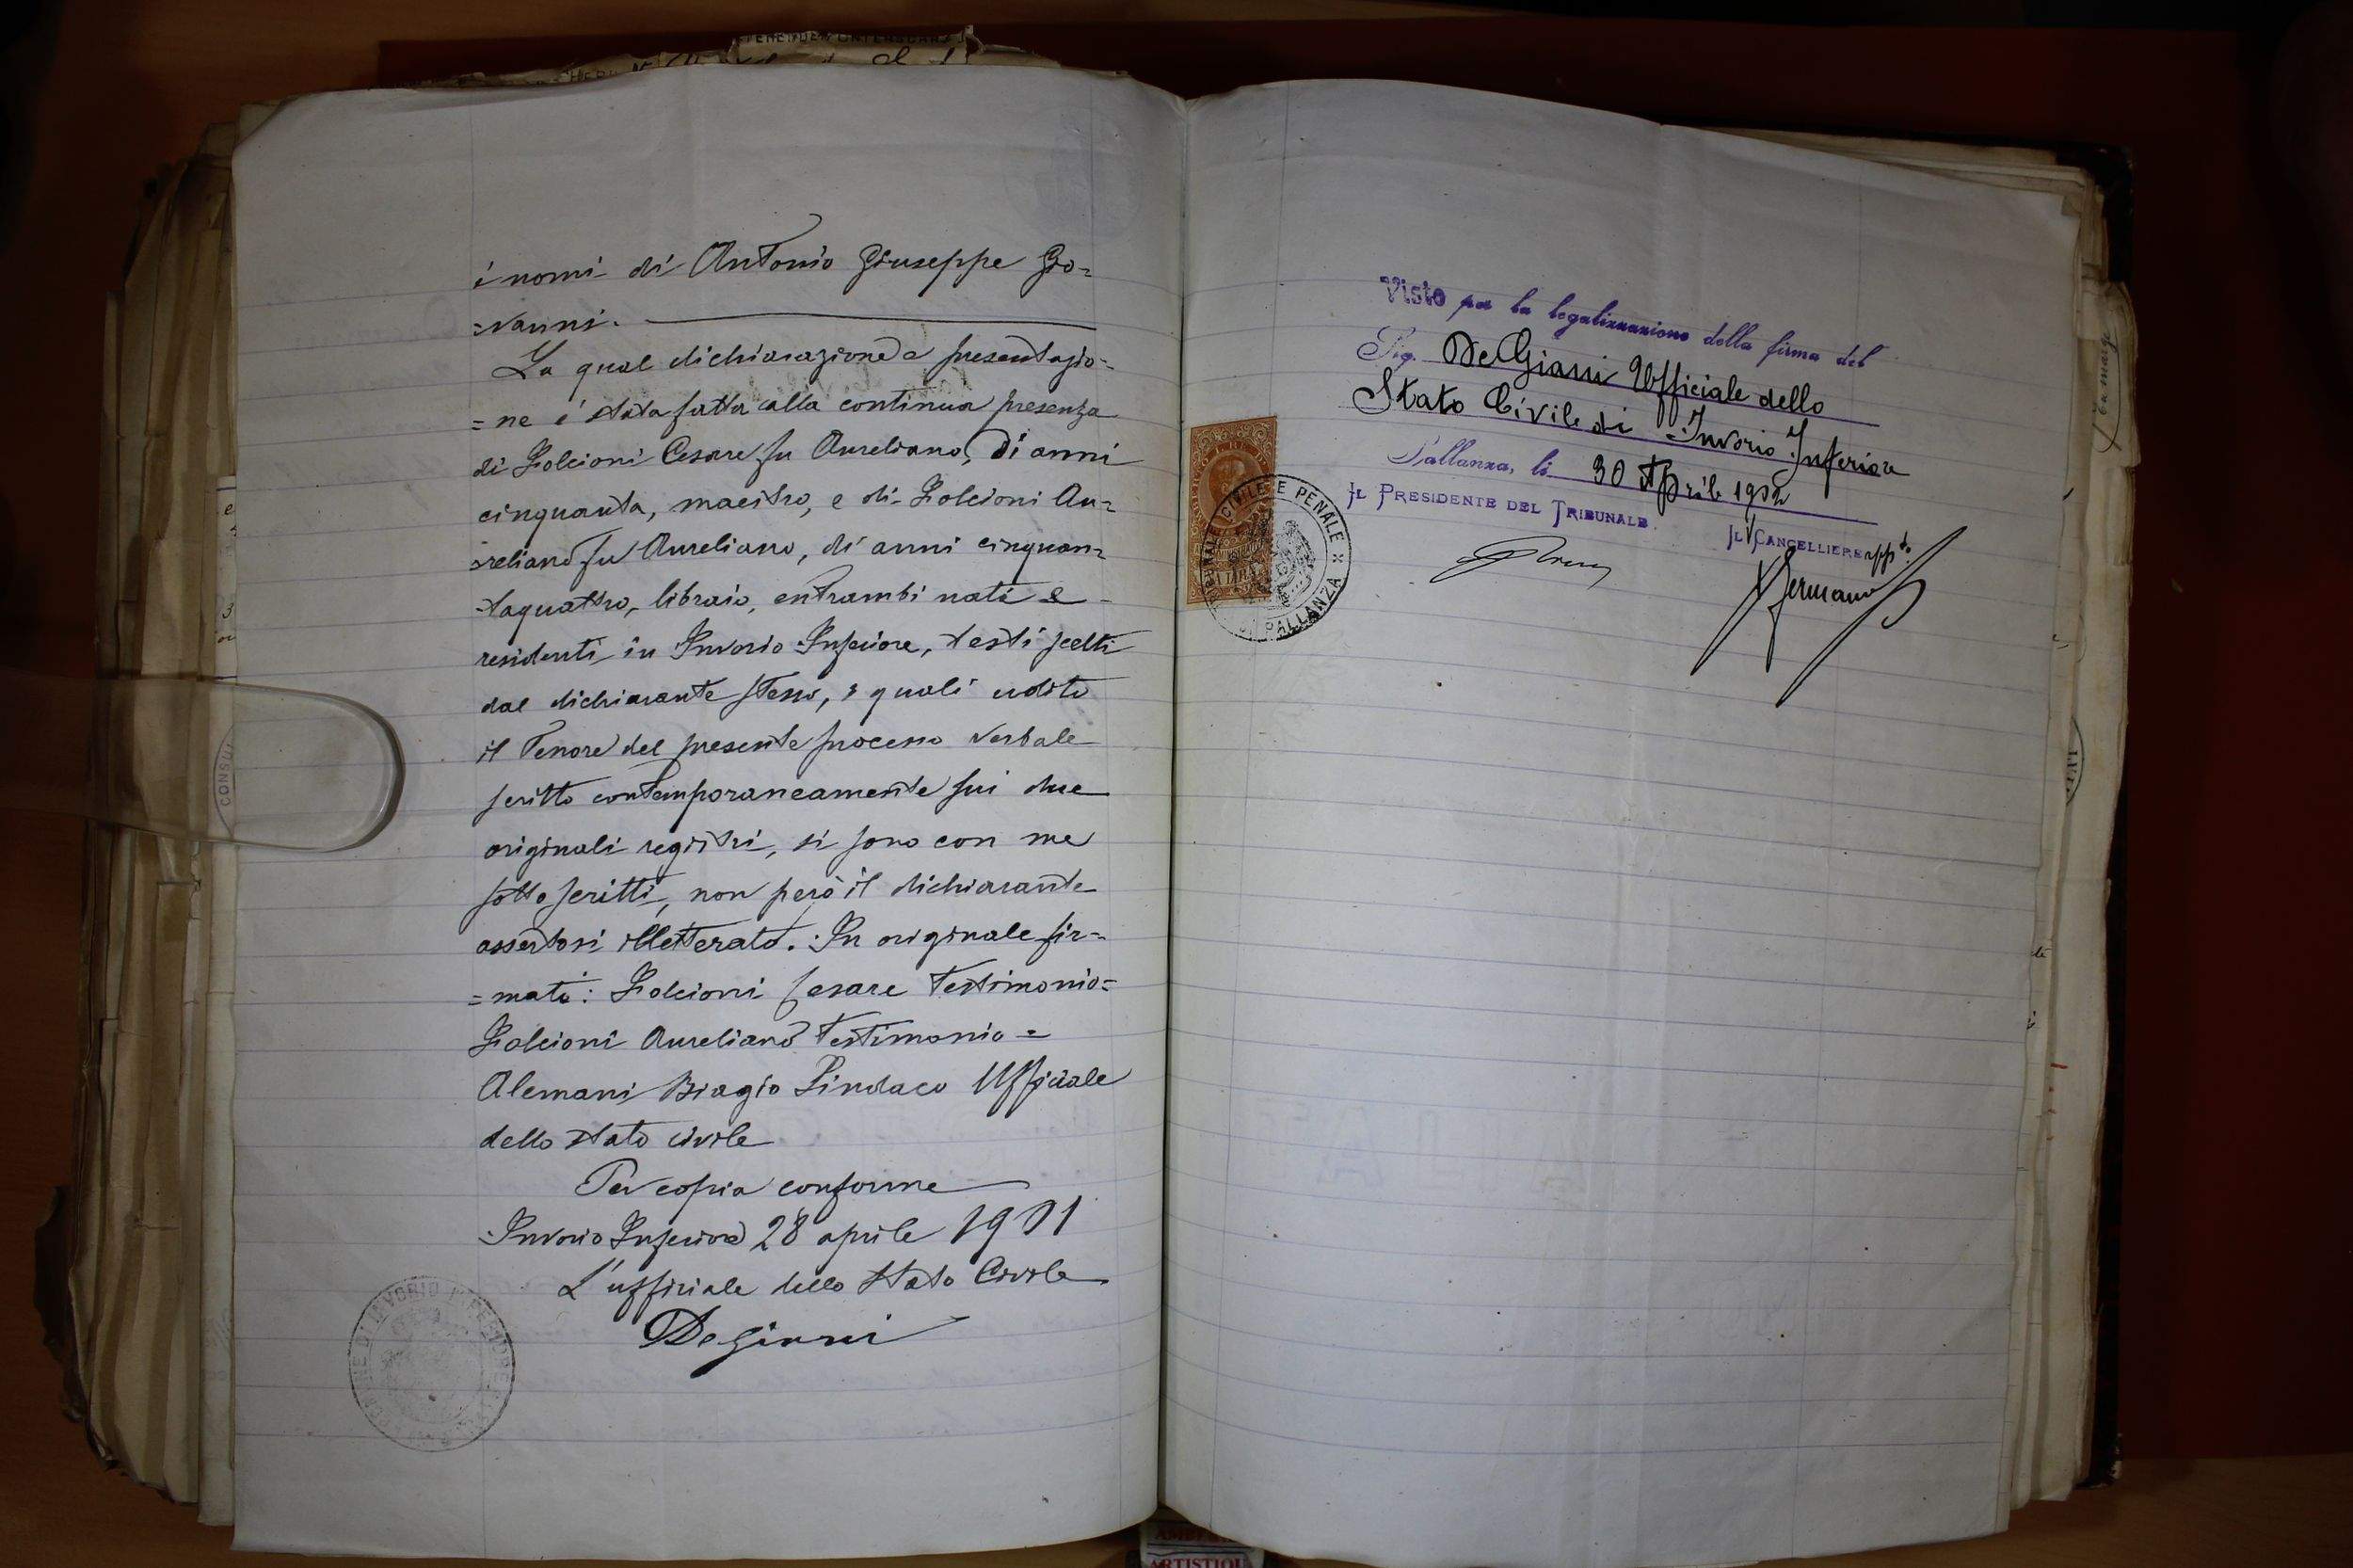 i nomi di Antonio Giuseppe Gio=
=vanni.
La qual dichiarazione e presentazio=
=ne è stata fatta alla continua presenza
di Folcioni Cesare fu Aureliano, di anni
cinquanta, maestro, e di Folcioni Au=
=reliano fu Aureliano, di anni cinquan=
taquattro, libraio, entrambi nati e
residenti in Invorio Inferiore, testi scelti
dal dichiarante stesso, i quali udito
il tenore del presente processo verbale
scritto contemporaneamente sui due
originali registri, si sono con me
sottoscritti, non però il dichiarante
assertosi illetterato. In originale fir=
=mati: Folcioni Cesare testimonio=
Folcioni Aureliano testimonio=
Alemani Biagio Sindaco Uffiziale
dello stato civile
Per copia conforme
Invorio Inferiore 28 aprile 1901
L'uffiziale dello Stato Civile
De Giani
Visto per la legalizzazione della firma del
Sig. De Giani Ufficiale dello
Stato Civile di Invorio Inferiore
Pallanza, li 30 Aprile 1902
IL PRESIDENTE DEL TRIBUNALE
IL V CANCELLIERE
Germano
TRIBUNALE CIVILE E PENALE DI PALLANZA
CONSU
ARTISTIQU